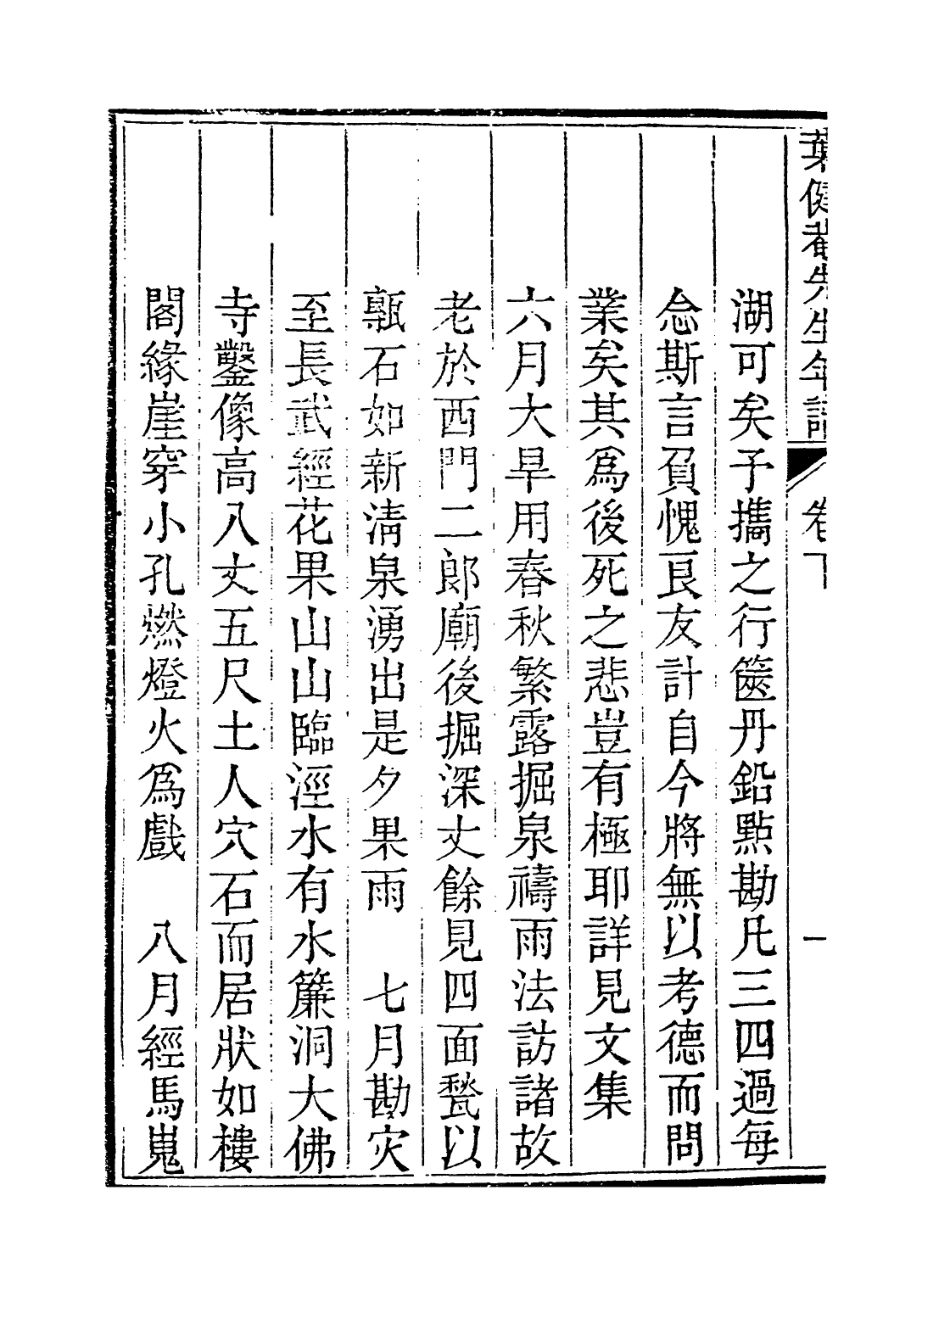 葉健菴先生年譜
卷下
一
湖可矣予攜之行篋丹鉛點勘凡三四過每
念斯言負愧良友計自今將無以考德而問
業矣其爲後死之悲豈有極耶詳見文集
六月大旱用春秋繁露掘泉禱雨法訪諸故
老於西門二郎廟後掘深丈餘見四面甃以
甎石如新清泉湧出是夕果雨　七月勘灾
至長武經花果山山臨涇水有水簾洞大佛
寺鑿像高八丈五尺土人穴石而居狀如樓
閣緣崖穿小孔燃燈火爲戲　八月經馬嵬